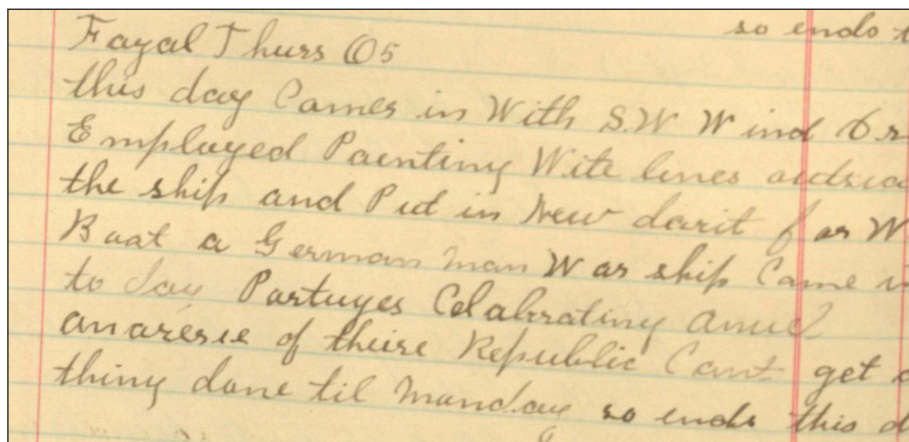 so ends t
Fayal Thurs 05
this day Comes in With S.W Wind
Employed Painting Wite lines
the ship and Put in New davit for W
Boat a German man War ship Came i
to day Portuges Celabrating
of theire Republic Cant get
thing done til Monday so ends this d